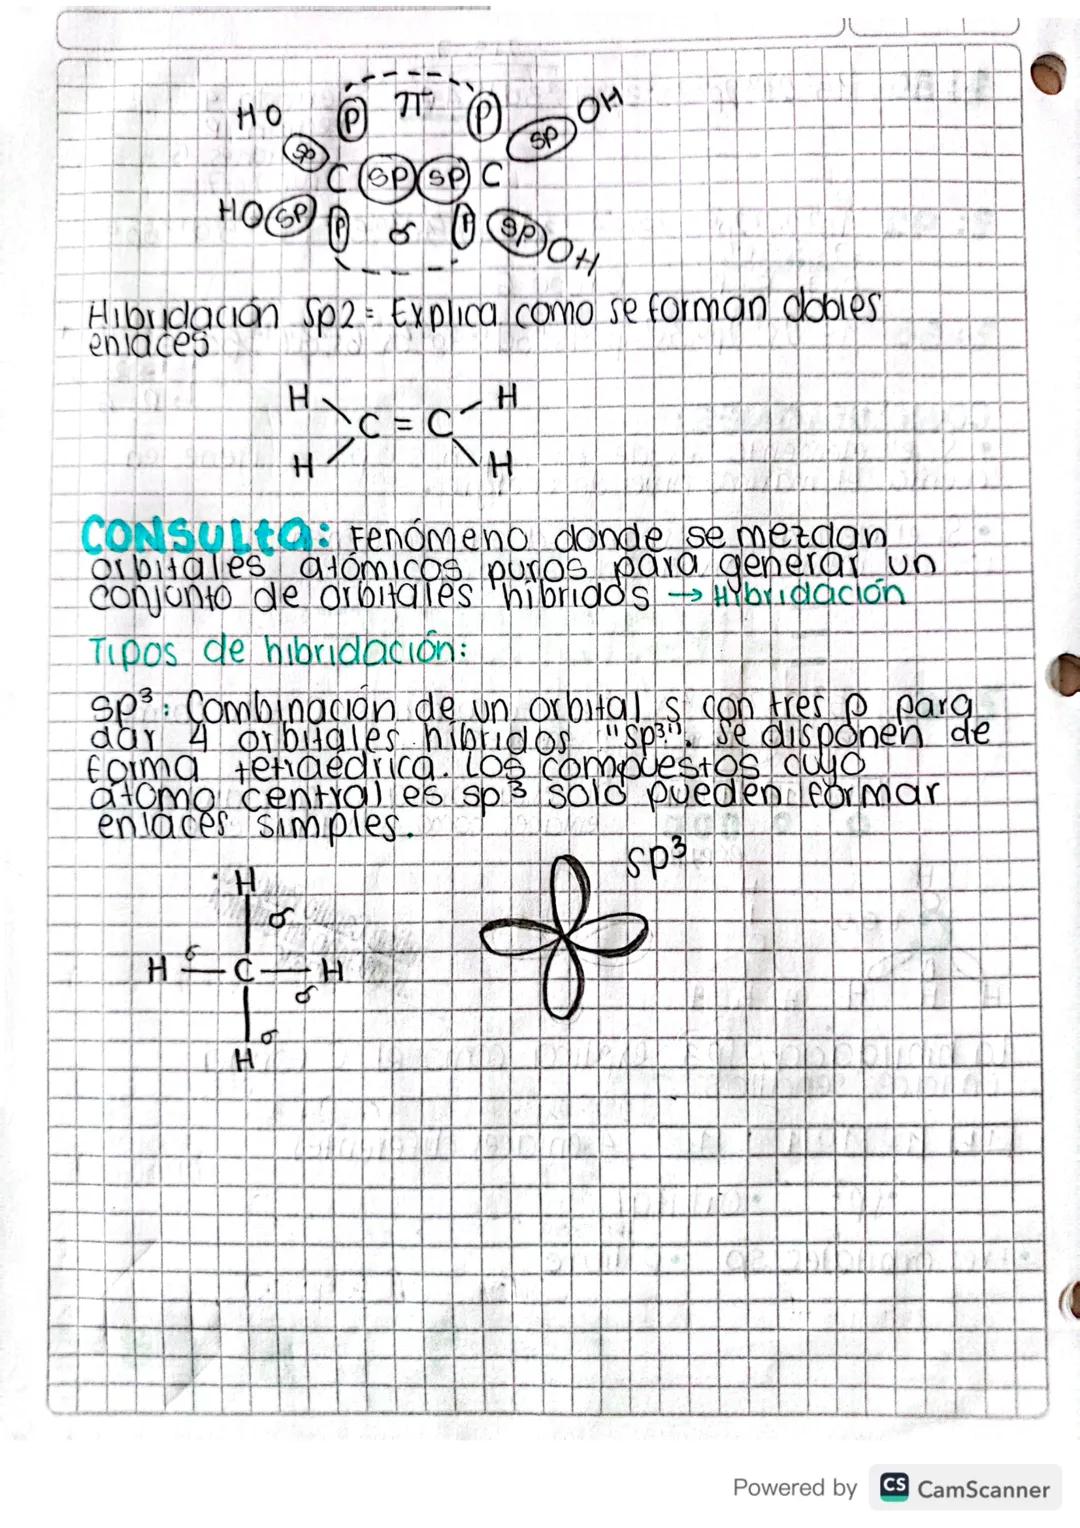 P π P
HO SP SP OH
C SP SP C
HO SP P σ P SP OH
Hibridación Sp2= Explica como se forman dobles
enlaces
H H
C = C
H H
CONSULTA: Fenómeno donde se mezclan
orbitales atómicos puros para generar un
conjunto de orbitales híbridos → Hibridación
Tipos de hibridación:
sp³: Combinación de un orbital s con tres p para
dar 4 orbitales híbridos "sp³". Se disponen de
forma tetraédrica. Los compuestos cuyo
átomo central es sp³ solo pueden formar
enlaces simples.
sp³
H
σ
H σ C H
σ
σ
H
Powered by CS CamScanner